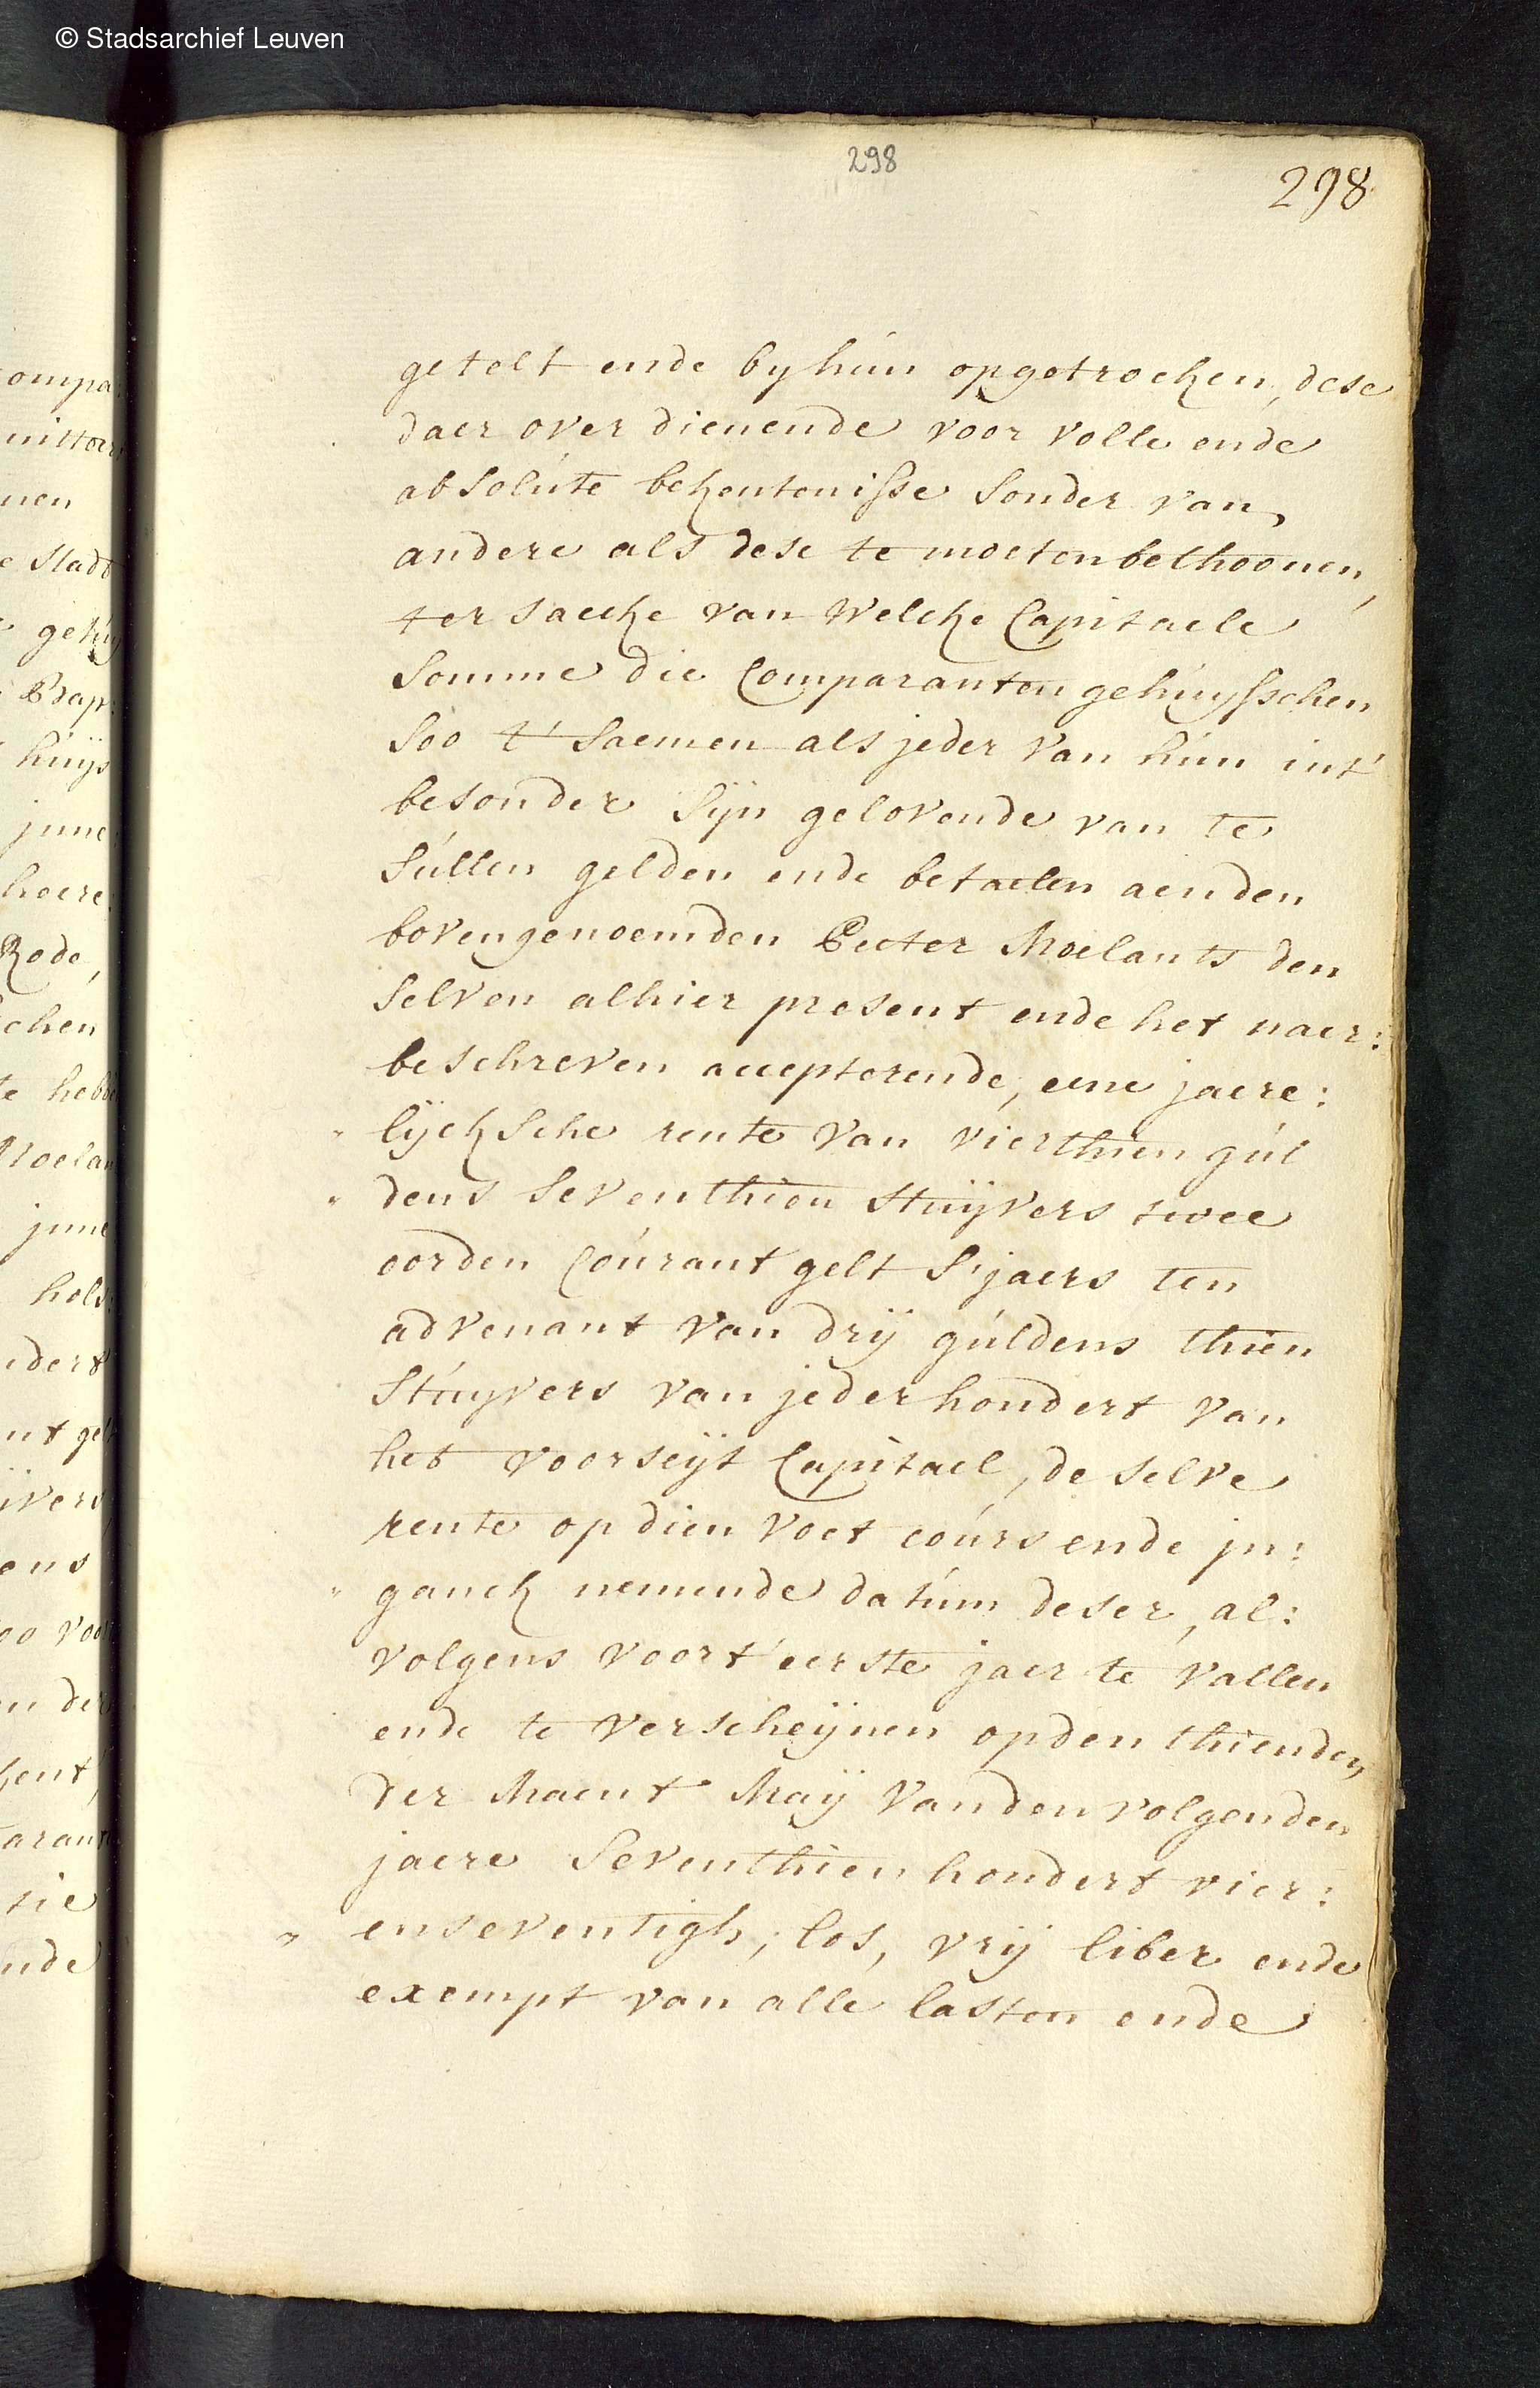 © Stadsarchief Leuven
298
298
getelt ende by hún opgetrocken, dese
daer over dienende voor volle ende
absolúte bekentenisse sonder van
andere als dese te moeten bethoonen,
ter saecke van welcke Capitaele
Somme die Comparanten gehúysschen
soo t' saemen als jeder van hún int'
besonder sijn gelovende van te
súllen gelden ende betaelen aen den
bovengenoemden Peeter Moelants den
selven alhier present ende het naer:
beschreven accepterende, eene jaere:
lijcksche rente van vierthien gúl
dens seventhien stuijvers twee
oorden Coúrant gelt s'jaers ten
advenant van drij gúldens thien
stúyvers van jeder hondert van
het voorseijt Capitael, de selve
rente op dien voet coúrs ende jn:
ganck nemende datúm deser, al:
volgens voor t' eerste jaer te vallen
ende te verscheijnen op den thienden
der Maent Maij van den volgenden
jaere seventhien hondert vier:
enseventigh; los, vrij liber ende
exempt van alle lasten ende